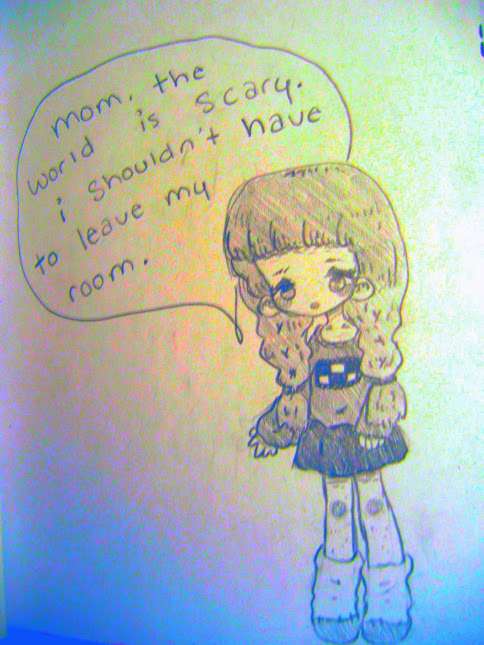 mom. the
world is scary.
i shouldn't have
to leave my
room.